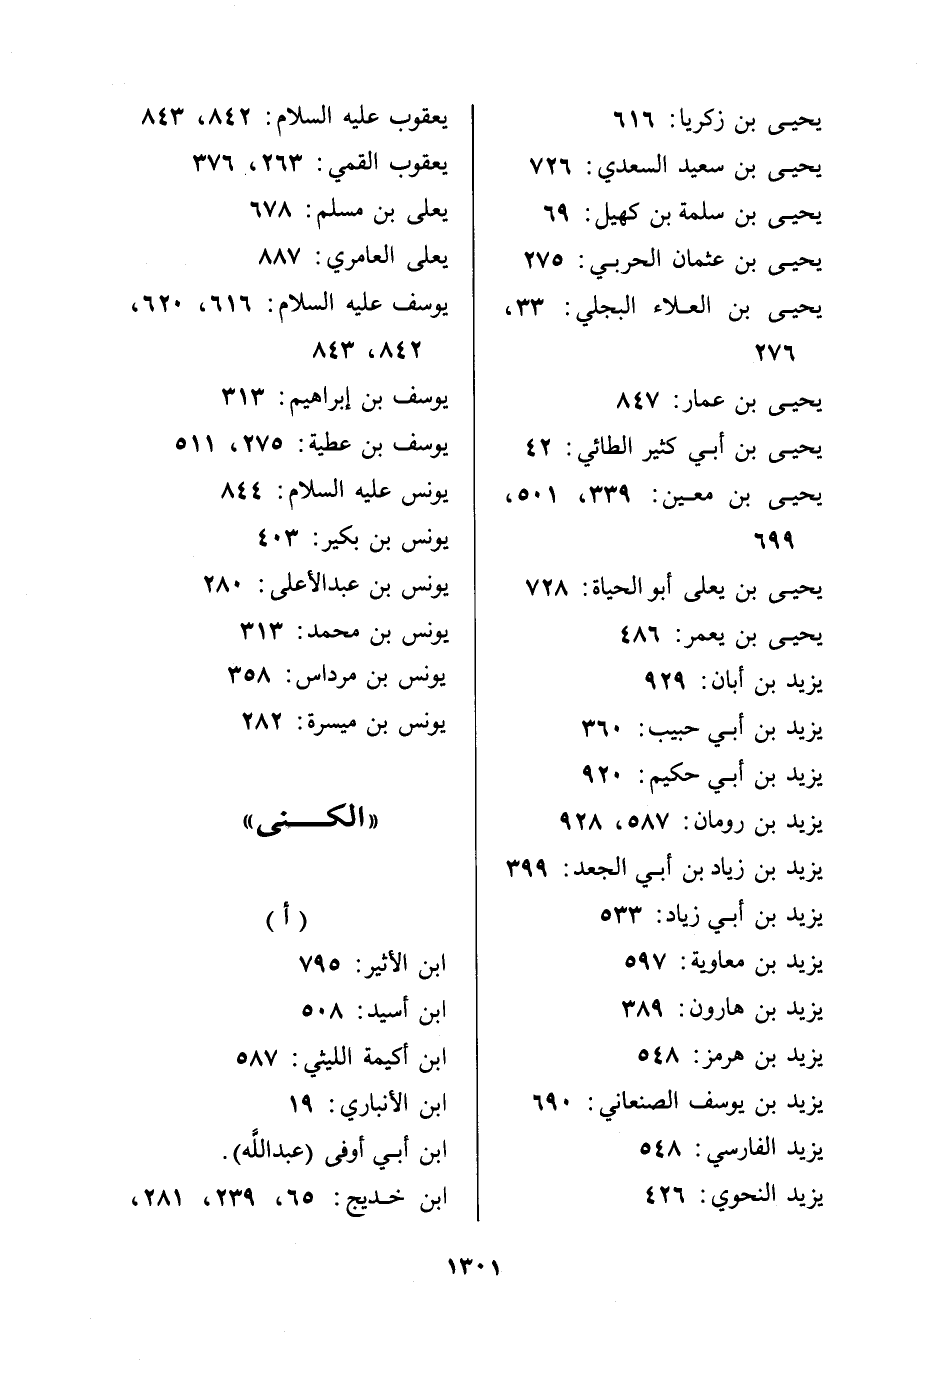 يحيى بن زكريا: ٦١٦
يحيى بن سعيد السعدي: ٧٢٦
يحيى بن سلمة بن كهيل: ٦٩
يحيى بن عثمان الحربي: ٢٧٥
يحيى بن العلاء البجلي: ٣٣،
٢٧٦
يحيى بن عمار: ٨٤٧
يحيى بن أبي كثير الطائي: ٤٢
يحيى بن معين: ٣٣٩، ٥٠١،
٦٩٩
يحيى بن يعلى أبو الحياة: ٧٢٨
يحيى بن يعمر: ٤٨٦
يزيد بن أبان: ٩٢٩
يزيد بن أبي حبيب: ٣٦٠
يزيد بن أبي حكيم: ٩٢٠
يزيد بن رومان: ٥٨٧، ٩٢٨
يزيد بن زياد بن أبي الجعد: ٣٩٩
يزيد بن أبي زياد: ٥٣٣
يزيد بن معاوية: ٥٩٧
يزيد بن هارون: ٣٨٩
يزيد بن هرمز: ٥٤٨
يزيد بن يوسف الصنعاني: ٦٩٠
يزيد الفارسي: ٥٤٨
يزيد النحوي: ٤٢٦
يعقوب عليه السلام: ٨٤٢، ٨٤٣
يعقوب القمي: ٢٦٣، ٣٧٦
يعلى بن مسلم: ٦٧٨
يعلى العامري: ٨٨٧
يوسف عليه السلام: ٦١٦، ٦٢٠،
٨٤٢، ٨٤٣
يوسف بن إبراهيم: ٣١٣
يوسف بن عطية: ٢٧٥، ٥١١
يونس عليه السلام: ٨٤٤
يونس بن بكير: ٤٠٣
يونس بن عبدالأعلى: ٢٨٠
يونس بن محمد: ٣١٣
يونس بن مرداس: ٣٥٨
يونس بن ميسرة: ٢٨٢
«الكنى»
(أ)
ابن الأثير: ٧٩٥
ابن أسيد: ٥٠٨
ابن أكيمة الليثي: ٥٨٧
ابن الأنباري: ١٩
ابن أبي أوفى (عبداللَّه).
ابن خديج: ٦٥، ٢٣٩، ٢٨١،
١٣٠١